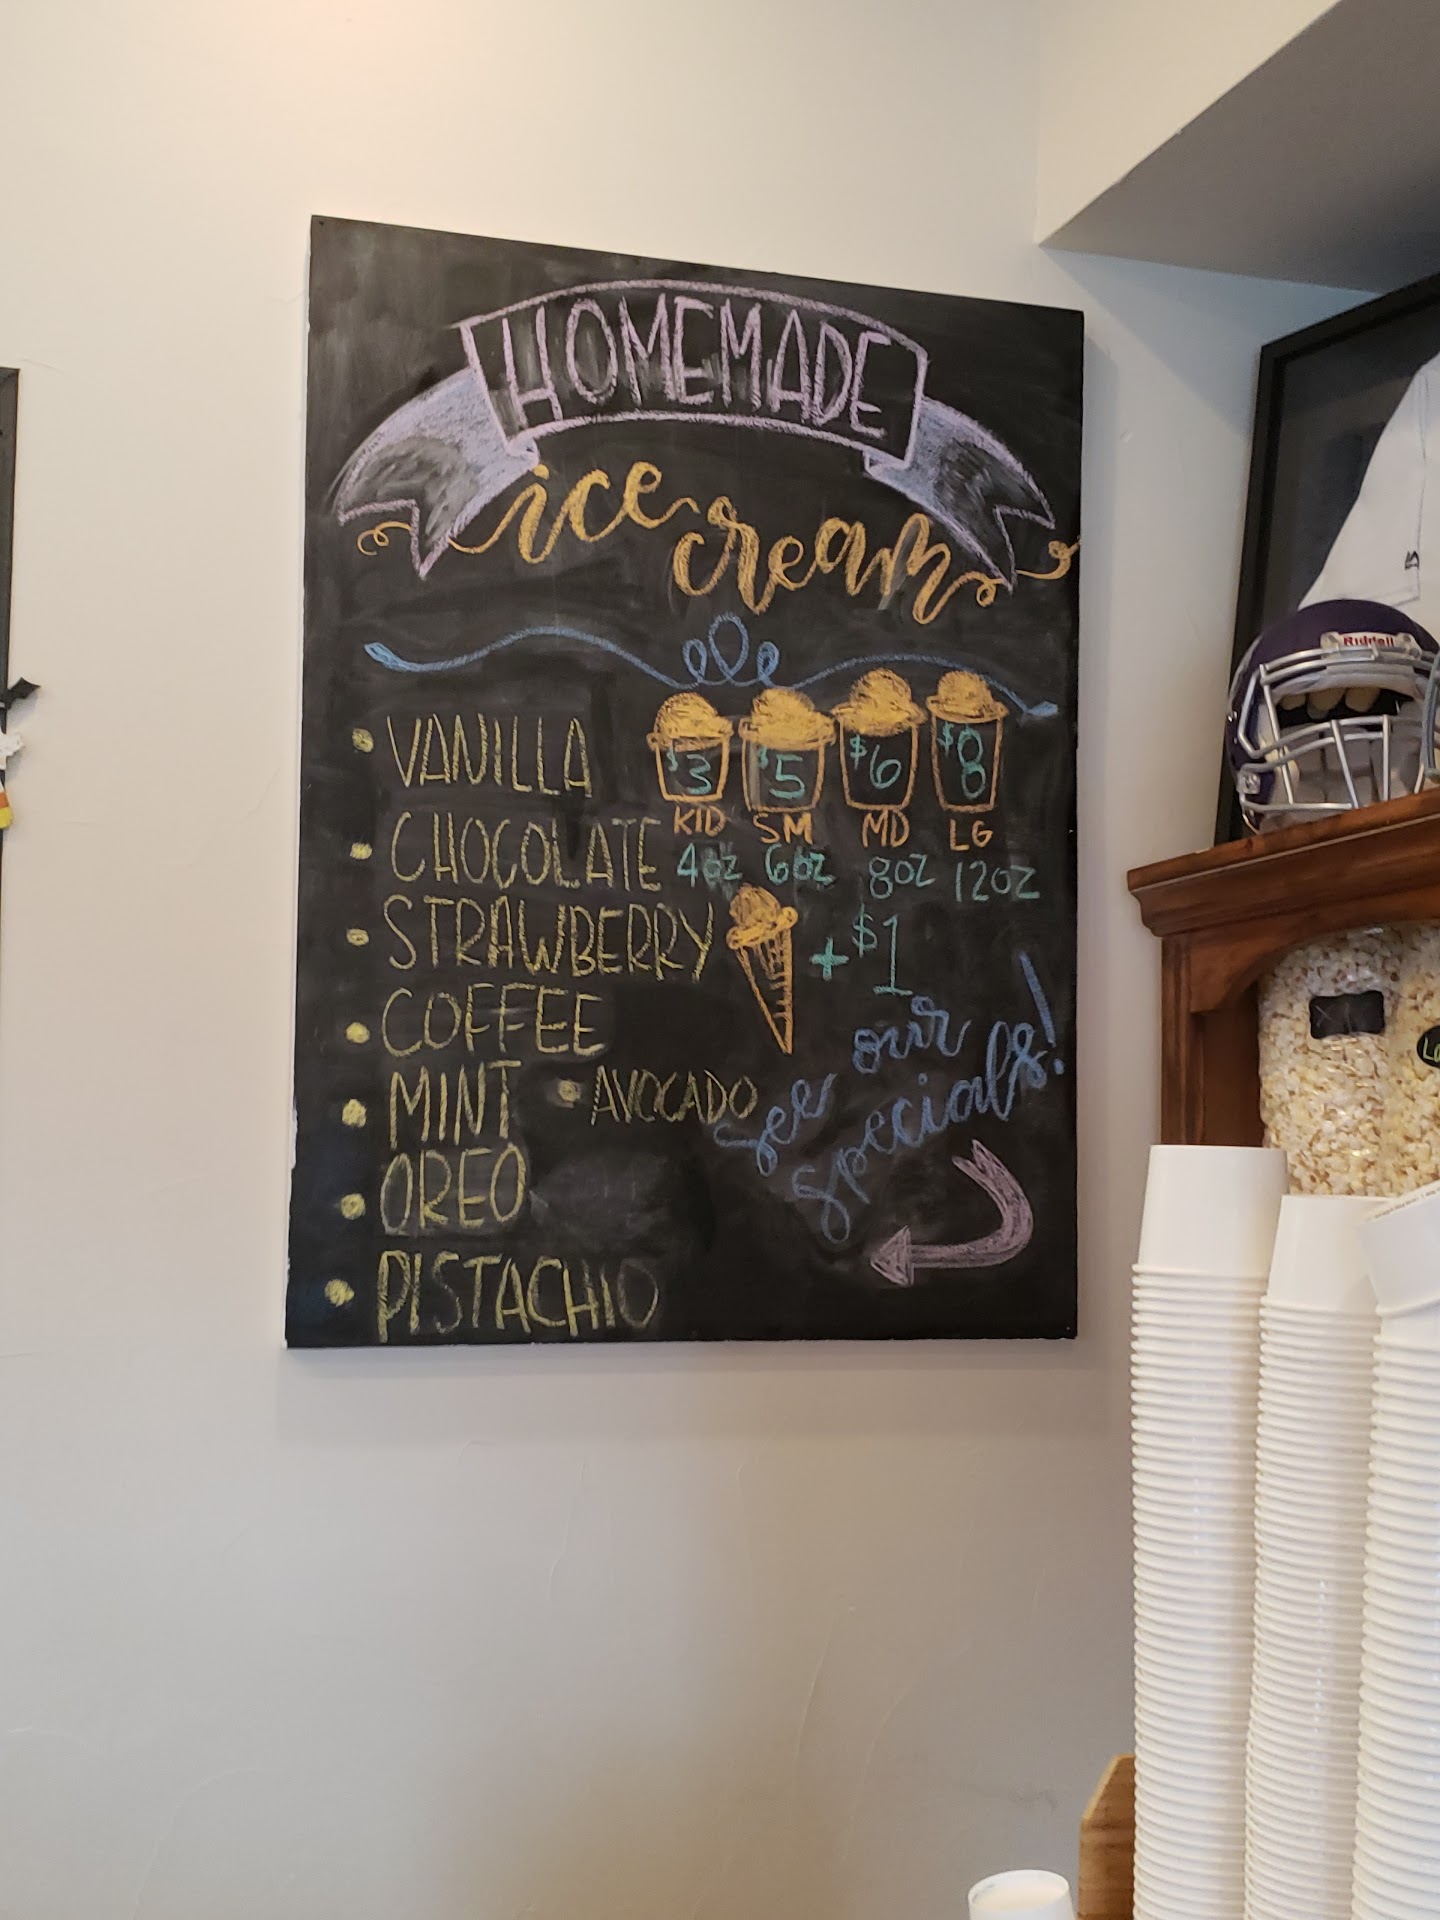 HOMEMADE
ice cream
VANILLA
CHOCOLATE
STRAWBERRY
COFFEE
MINT
AVOCADO
OREO
PISTACHIO
$3 $5 $6 $8
KID SM MD LG
4oz 6oz 8oz 12oz
+ $1
see our
specials!
Riddell